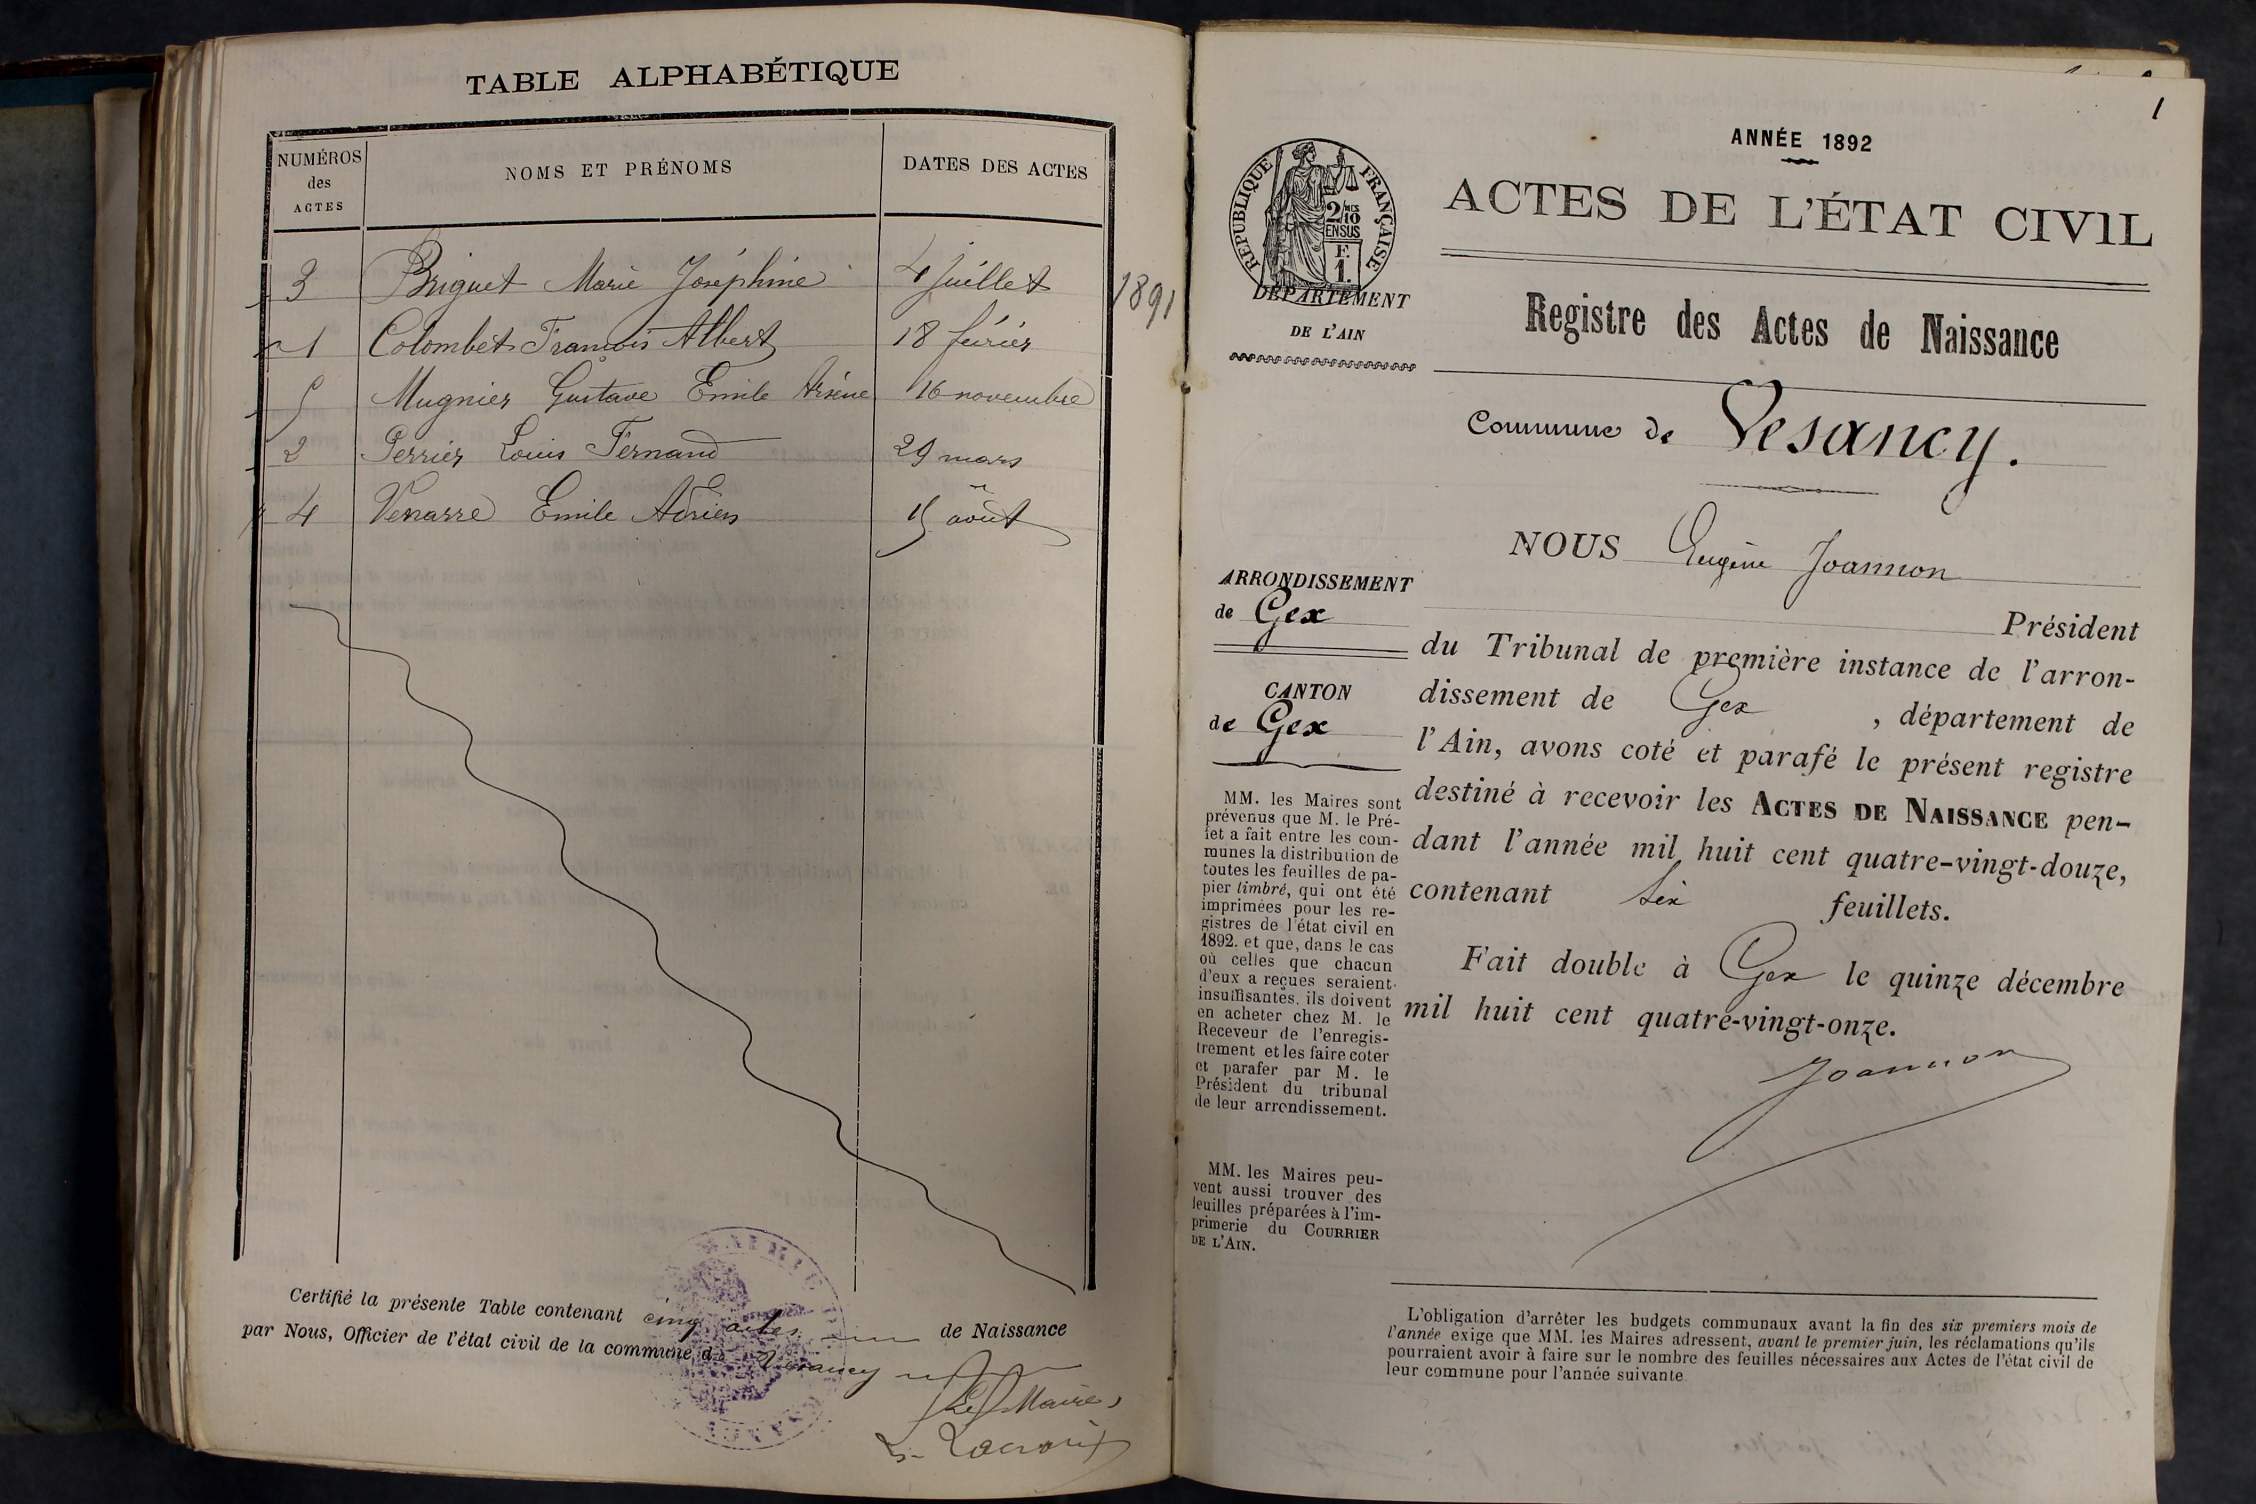 TABLE ALPHABÉTIQUE
NUMÉROS des ACTES
NOMS ET PRÉNOMS
DATES DES ACTES
3 Briguet Marie Joséphine 4 Juillet 1891
1 Colombet François Albert 18 février
5 Mugnier Gustave Emile Arsène 16 novembre
2 Perrier Louis Fernand 29 mars
4 Venarre Emile Adrien 15 août
Certifié la présente Table contenant cinq actes de Naissance
par Nous, Officier de l'état civil de la commune de Vesancy
Le Maire,
Lacroix
1
ANNÉE 1892
RÉPUBLIQUE FRANÇAISE
2/10
EN SUS
F.
1.
DÉPARTEMENT
DE L'AIN
ACTES DE L'ÉTAT CIVIL
Registre des Actes de Naissance
Commune de Vesancy.
ARRONDISSEMENT
de Gex
CANTON
de Gex
MM. les Maires sont
prévenus que M. le Pré-
fet a fait entre les com-
munes la distribution de
toutes les feuilles de pa-
pier timbré, qui ont été
imprimées pour les re-
gistres de l'état civil en
1892. et que, dans le cas
où celles que chacun
d'eux a reçues seraient
insuffisantes, ils doivent
en acheter chez M. le
Receveur de l'enregis-
trement et les faire coter
et parafer par M. le
Président du tribunal
de leur arrondissement.
MM. les Maires peu-
vent aussi trouver des
feuilles préparées à l'im-
primerie du COURRIER
DE L'AIN.
NOUS Eugène Joannon
Président
du Tribunal de première instance de l'arron-
dissement de Gex , département de
l'Ain, avons coté et parafé le présent registre
destiné à recevoir les ACTES DE NAISSANCE pen-
dant l'année mil huit cent quatre-vingt-douze,
contenant Six feuillets.
Fait double à Gex le quinze décembre
mil huit cent quatre-vingt-onze.
Joannon
L'obligation d'arrêter les budgets communaux avant la fin des six premiers mois de
l'année exige que MM. les Maires adressent, avant le premier juin, les réclamations qu'ils
pourraient avoir à faire sur le nombre des feuilles nécessaires aux Actes de l'état civil de
leur commune pour l'année suivante